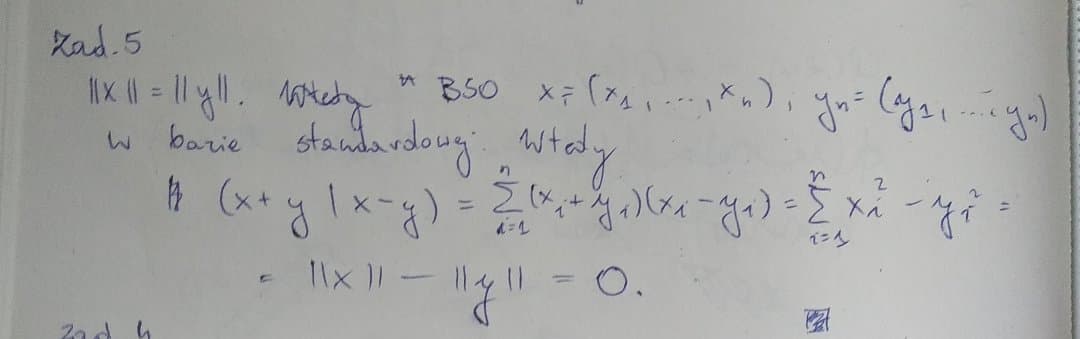 Zad. 5
||x|| = ||y||. Wtedy BSO x = (x₁, ..., xₙ), yₙ = (y₁, ..., yₙ)
w bazie standardowej. Wtedy
(x + y | x - y) = ∑ᵢ₌₁ⁿ (xᵢ + yᵢ)(xᵢ - yᵢ) = ∑ᵢ₌₁ⁿ xᵢ² - yᵢ² =
= ||x|| - ||y|| = 0.
Zad 4